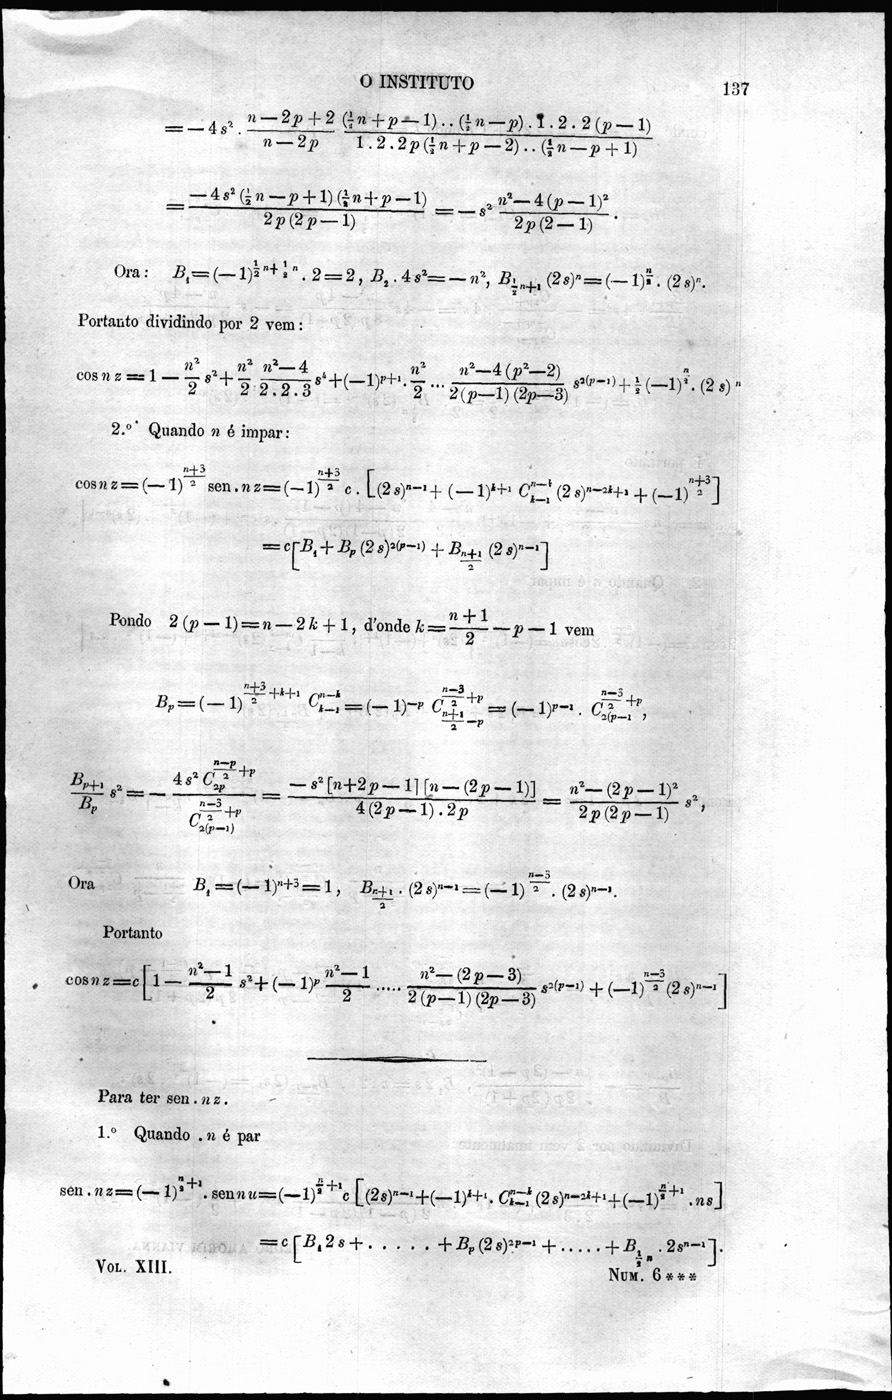 O INSTITUTO
137
= — 4 s². (n — 2p + 2)/(n — 2p) ((½ n + p — 1) . . (½ n — p) . 1 . 2 . 2 (p — 1))/(1 . 2 . 2p (½ n + p — 2) . . (½ n — p + 1))
= (— 4 s² (½ n — p + 1) (½ n + p — 1))/(2 p (2 p — 1)) = — s² (n² — 4 (p — 1)²)/(2 p (2 — 1)) .
Ora : B₁ = (— 1)^(½ n + ½ n) . 2 = 2, B₂ . 4 s² = — n², B_(½ n+1) (2 s)ⁿ = (— 1)^(n/2) . (2 s)ⁿ.
Portanto dividindo por 2 vem :
cos n z = 1 — n²/2 s² + n²/2 (n² — 4)/(2 . 2 . 3) s⁴ + (—1)^(p+1) . n²/2 ... (n² — 4 (p² — 2))/(2 (p—1) (2p—3)) s^(2(p—1)) + ½ (—1)^(n/2) . (2 s)ⁿ
2.º Quando n é impar :
cos n z = (— 1)^((n+3)/2) sen . n z = (— 1)^((n+3)/2) c . [(2 s)^(n—1) + (— 1)^(k+1) C^(n—k)_(k—1) (2 s)^(n—2k+1) + (— 1)^((n+3)/2)]
= c [B₁ + B_p (2 s)^(2(p—1)) + B_((n+1)/2) (2 s)^(n—1)]
Pondo 2 (p — 1) = n — 2 k + 1, d'onde k = (n + 1)/2 — p — 1 vem
B_p = (— 1)^((n+3)/2 + k + 1) C^(n—k)_(k—1) = (— 1)^(—p) C^((n—3)/2 + p)_((n+1)/2 — p) = (— 1)^(p—1) . C^((n—3)/2 + p)_(2(p—1) ,
B_(p+1)/B_p s² = — (4 s² C^((n—p)/2 + p)_(2p))/(C^((n—3)/2 + p)_(2(p—1))) = (— s² [n + 2p — 1] [n — (2p — 1)])/(4 (2 p — 1) . 2p) = (n² — (2 p — 1)²)/(2 p (2 p — 1)) s²,
Ora B₁ = (— 1)^(n+3) = 1, B_((n+1)/2) . (2 s)^(n—1) = (— 1)^((n—3)/2) . (2 s)^(n—1).
Portanto
cos n z = c [1 — (n² — 1)/2 s² + (— 1)^p (n² — 1)/2 ..... (n² — (2 p — 3))/(2 (p — 1) (2p — 3)) s^(2(p—1)) + (—1)^((n—3)/2) (2 s)^(n—1)]
Para ter sen . n z .
1.º Quando . n é par
sen . n z = (— 1)^(n/2 + 1) . sen n u = (—1)^(n/2 + 1) c [(2s)^(n—1) + (—1)^(k+1) . C^(n—k)_(k—1) (2 s)^(n—2k+1) + (—1)^(n/2 + 1) . n s]
= c [B₁ 2 s + . . . . . . + B_p (2 s)^(2p—1) + ..... + B_(½ n) . 2s^(n—1)] .
VOL. XIII.
NUM. 6 ***